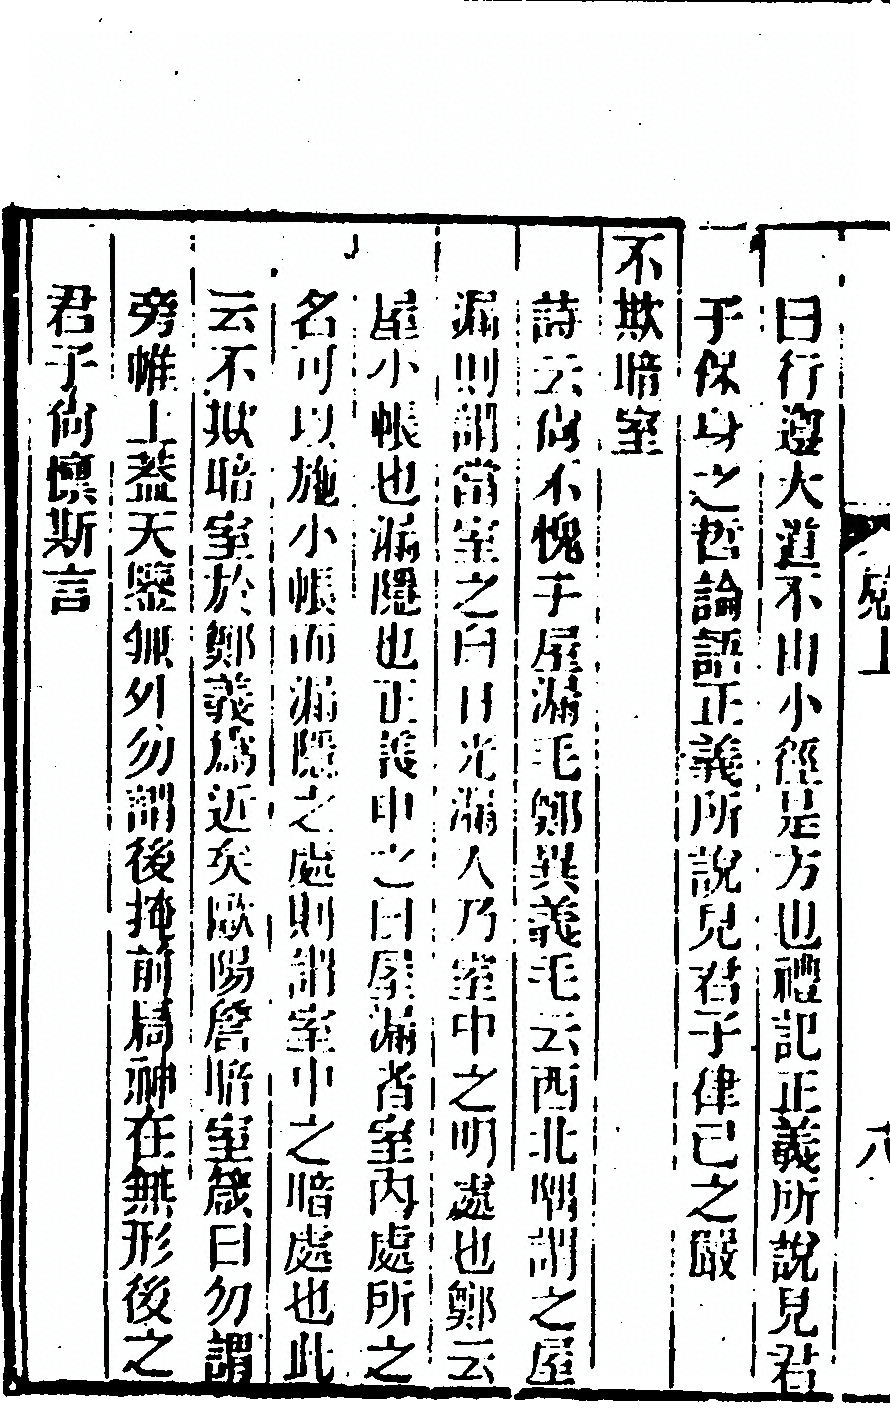 曰行遵大道不由小徑是方也禮記正義所說見君
子保身之哲論語正義所說見君子律己之嚴
不欺暗室
詩云尙不愧于屋漏毛鄭異義毛云西北隅謂之屋
漏則謂當室之白日光漏入乃室中之明處也鄭云
屋小帳也漏隱也正義申之曰屋漏者室內處所之
名可以施小帳而漏隱之處則謂室中之暗處也此
云不欺暗室於鄭義爲近矣歐陽詹暗室箴曰勿謂
旁帷上蓋天鑒無外勿謂後掩前扃神在無形後之
君子尙懍斯言
上
八